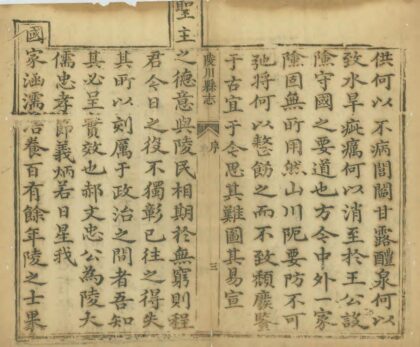 供何以不病閭閻甘露醴泉何以
致水旱疵癘何以消至於王公設
險守國之要道也方今中外一家
險固無所用然山川阨要防不可
弛將何以整飭之而不致頽廢鑒
于古宜于今思其難圖其易宣
陵川縣志
序
三
聖主之德意與陵民相期於無窮則程
君今日之役不獨彰已往之得失
其所以刻厲于政治之間者吾知
其必呈實效也郝文忠公為陵大
儒忠孝節義炳若日星我
國家涵濡治養百有餘年陵之士果